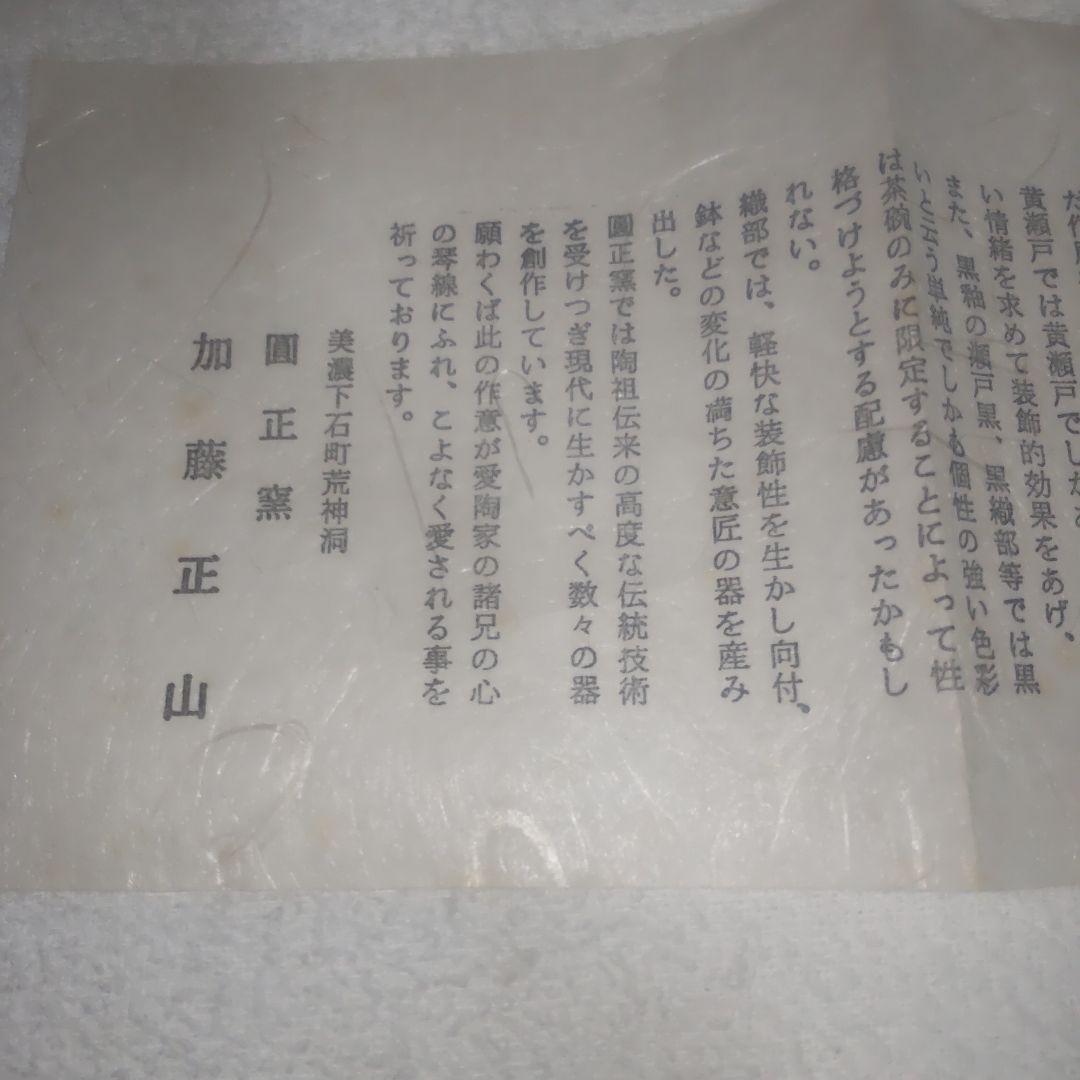 黄瀬戸では黄瀬戸でしか
い情緒を求めて装飾的効果をあげ、
また、黒釉の瀬戸黒、黒織部等では黒
いと云う単純でしかも個性の強い色彩
は茶碗のみに限定することによって性
格づけようとする配慮があったかもし
れない。
織部では、軽快な装飾性を生かし向付、
鉢などの変化の満ちた意匠の器を産み
出した。
圓正窯では陶祖伝来の高度な伝統技術
を受けつぎ現代に生かすべく数々の器
を創作しています。
願わくば此の作意が愛陶家の諸兄の心
の琴線にふれ、こよなく愛される事を
祈っております。
美濃下石町荒神洞
圓正窯
加藤正山